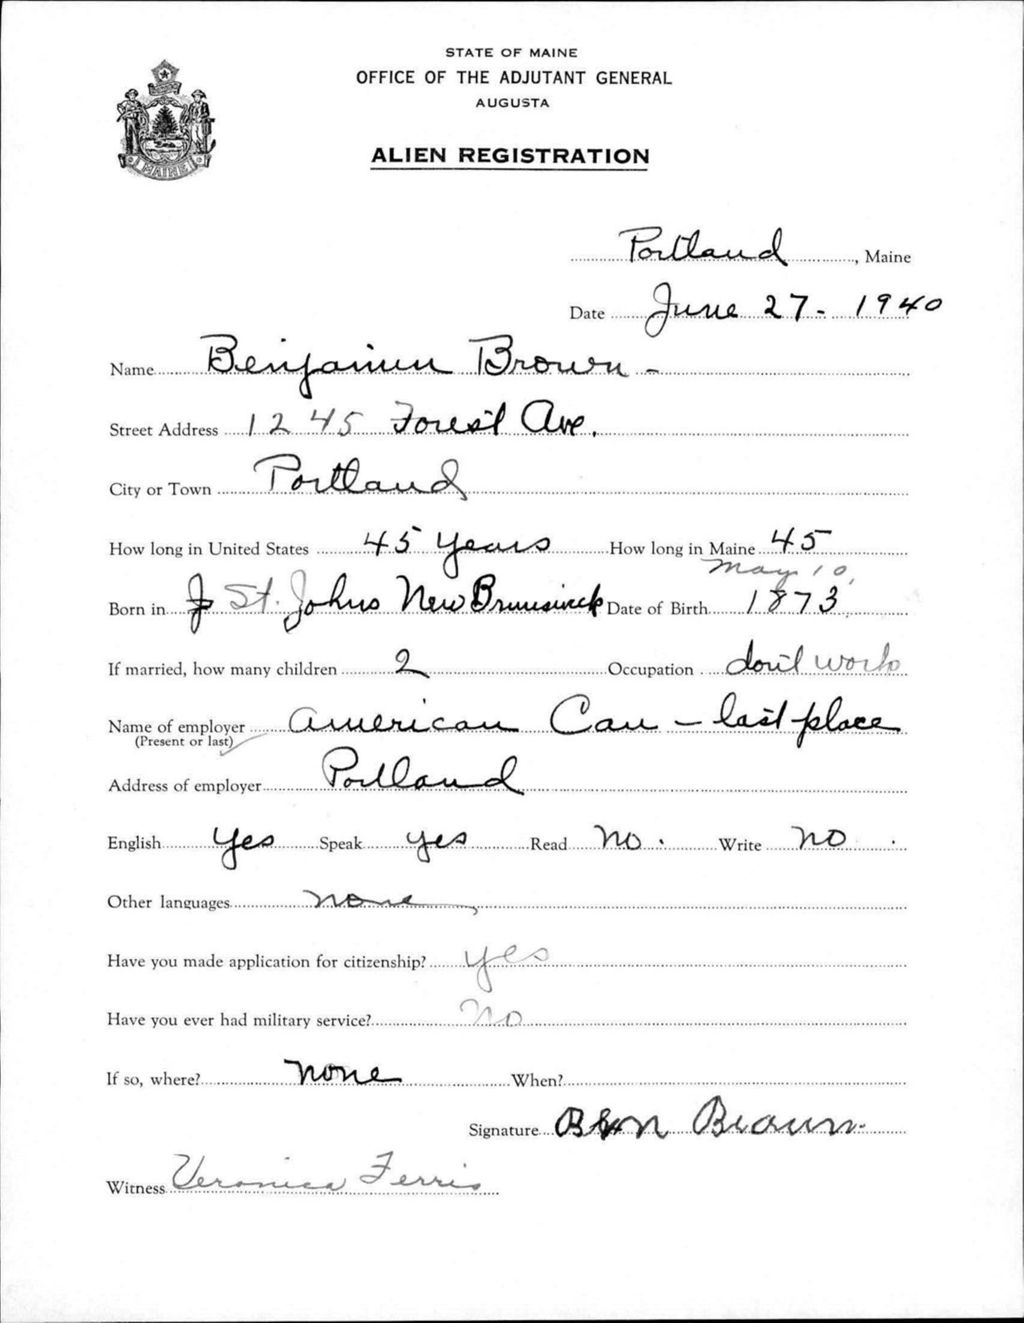 STATE OF MAINE
OFFICE OF THE ADJUTANT GENERAL
AUGUSTA
ALIEN REGISTRATION
MAINE
Portland, Maine
Date June 27 - 1940
Name Benjamin Brown -
Street Address 1245 Forest Ave.
City or Town Portland
How long in United States 45 years How long in Maine 45
May 10,
Born in St. Johns New Brunswick Date of Birth 1873
If married, how many children 2 Occupation don't work
Name of employer American Can - last place
(Present or last)
Address of employer Portland
English Yes Speak yes Read No. Write No.
Other languages none
Have you made application for citizenship? yes
Have you ever had military service? No
If so, where? none When?
Signature Ben Brown.
Witness Veronica Ferris